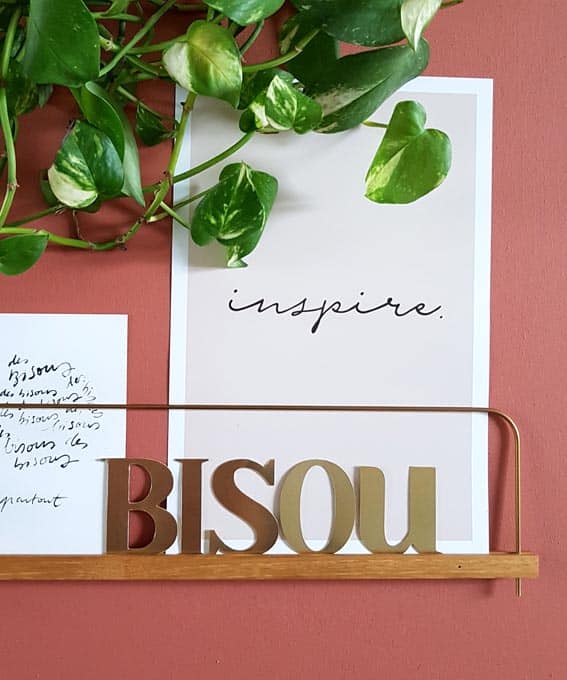 inspire.
des
Bisous
des bisous
des bisous
bisous des
bisous
partout
BISOU